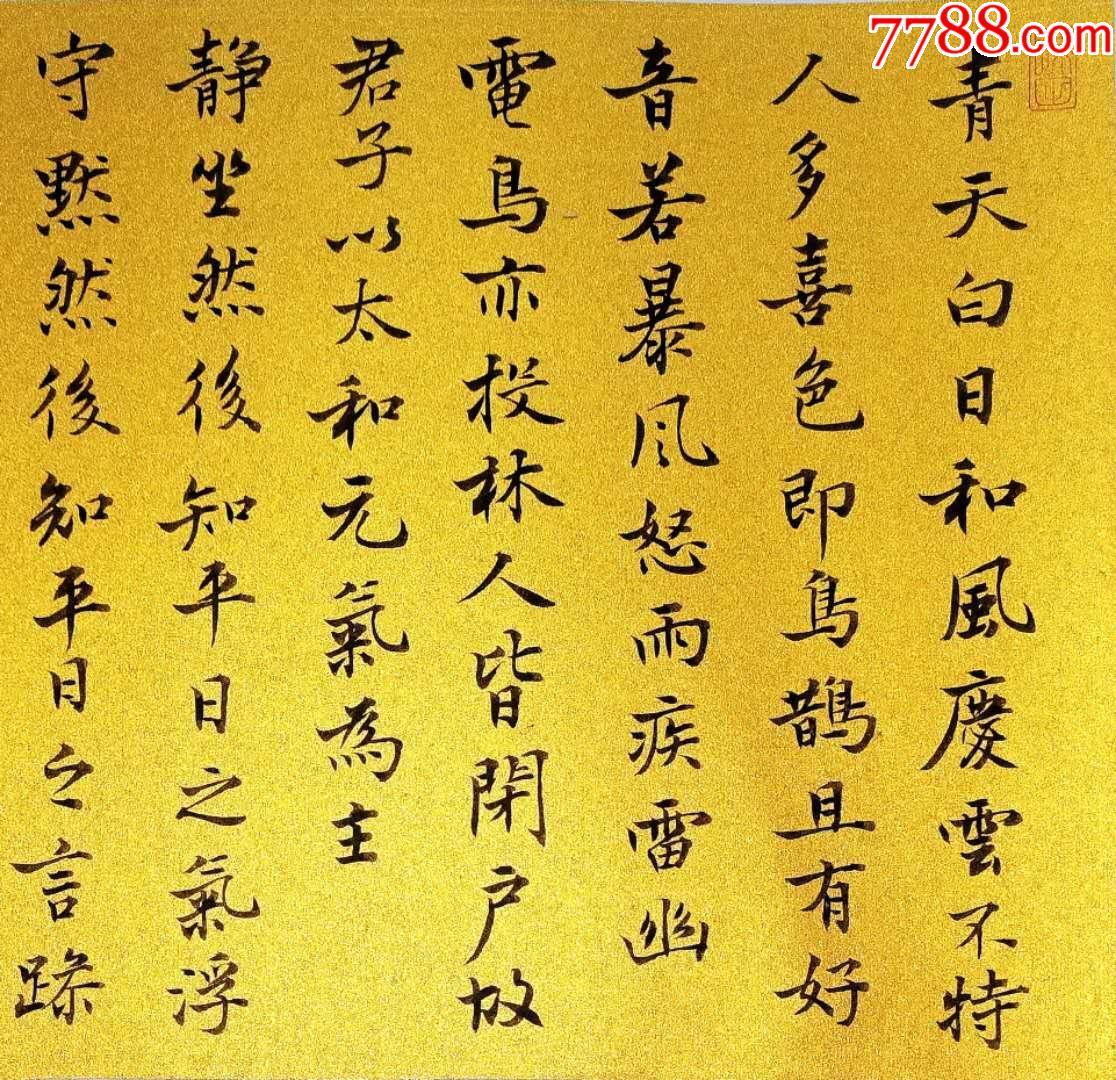 7788.com
青天白日和風慶雲不特
人多喜色即鳥鵲且有好
音若暴风怒雨疾雷幽
電鳥亦投林人皆閉户故
君子以太和元氣為主
静坐然後知平日之氣浮
守默然後知平日之言躁